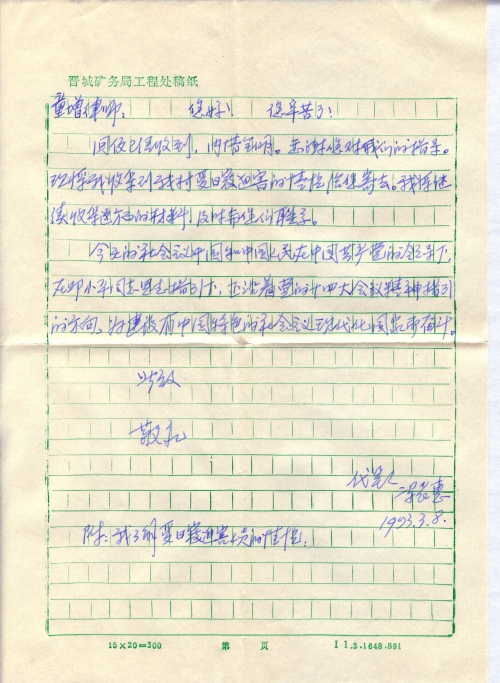 晋城矿务局工程处稿纸
童增律师： 您好！ 您辛苦了！
回信已经收到，内情。我们的指导。
现将我收集到我村受日寇迫害的情况给您寄去。我将继
续收集这方面的材料，及时和您们联系。
今天的社会主义中国和中国人民在中国共产党的领导下，
在邓小平同志思想指引下，正沿着党的十四大会议精神指引
的方向，为建设有中国特色的社会主义现代化国家而奋斗。
此致
敬礼
代笔人
1993.3.8.
附：我了解受日寇迫害人员的情况：
15×20=300 第 页 11.3.1648.891